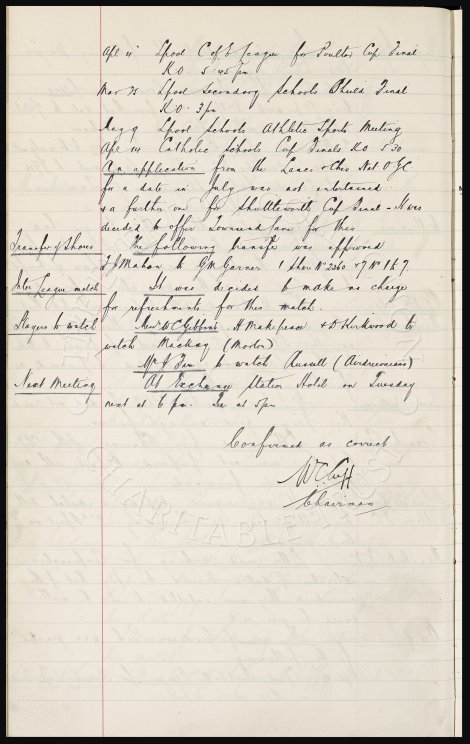 Apl 11 Lpool C of E League for Poulton Cup Final
K.O. 5.45 pm
Mar 28 Lpool Secondary Schools Shield Final
K.O. 3 pm
Aug 9 Lpool Schools Athletic Sports Meeting
Apl 14 Catholic Schools Cup Finals K.O 5.30
An application from the Lancs & Ches
for a date in July was not entertained
& a further one for Shuttleworth Cup Final - It was
decided to offer Townsend Lane for this
Transfer of Shares The following transfer was approved
T J Mahon to G M Garner 1 Share No 2360
Inter League match It was decided to make no charge
for refreshments for this match.
Players to watch W C Gibbins, A Makepeace & D Kirkwood to
watch Mackay (Morton)
Mr to watch (Airdrieonians)
Next Meeting At Exchange Station Hotel on Tuesday
next at 6 pm. Tea at 5 pm
Confirmed as correct
W.C. Cuff
Chairman
CHARITABLE